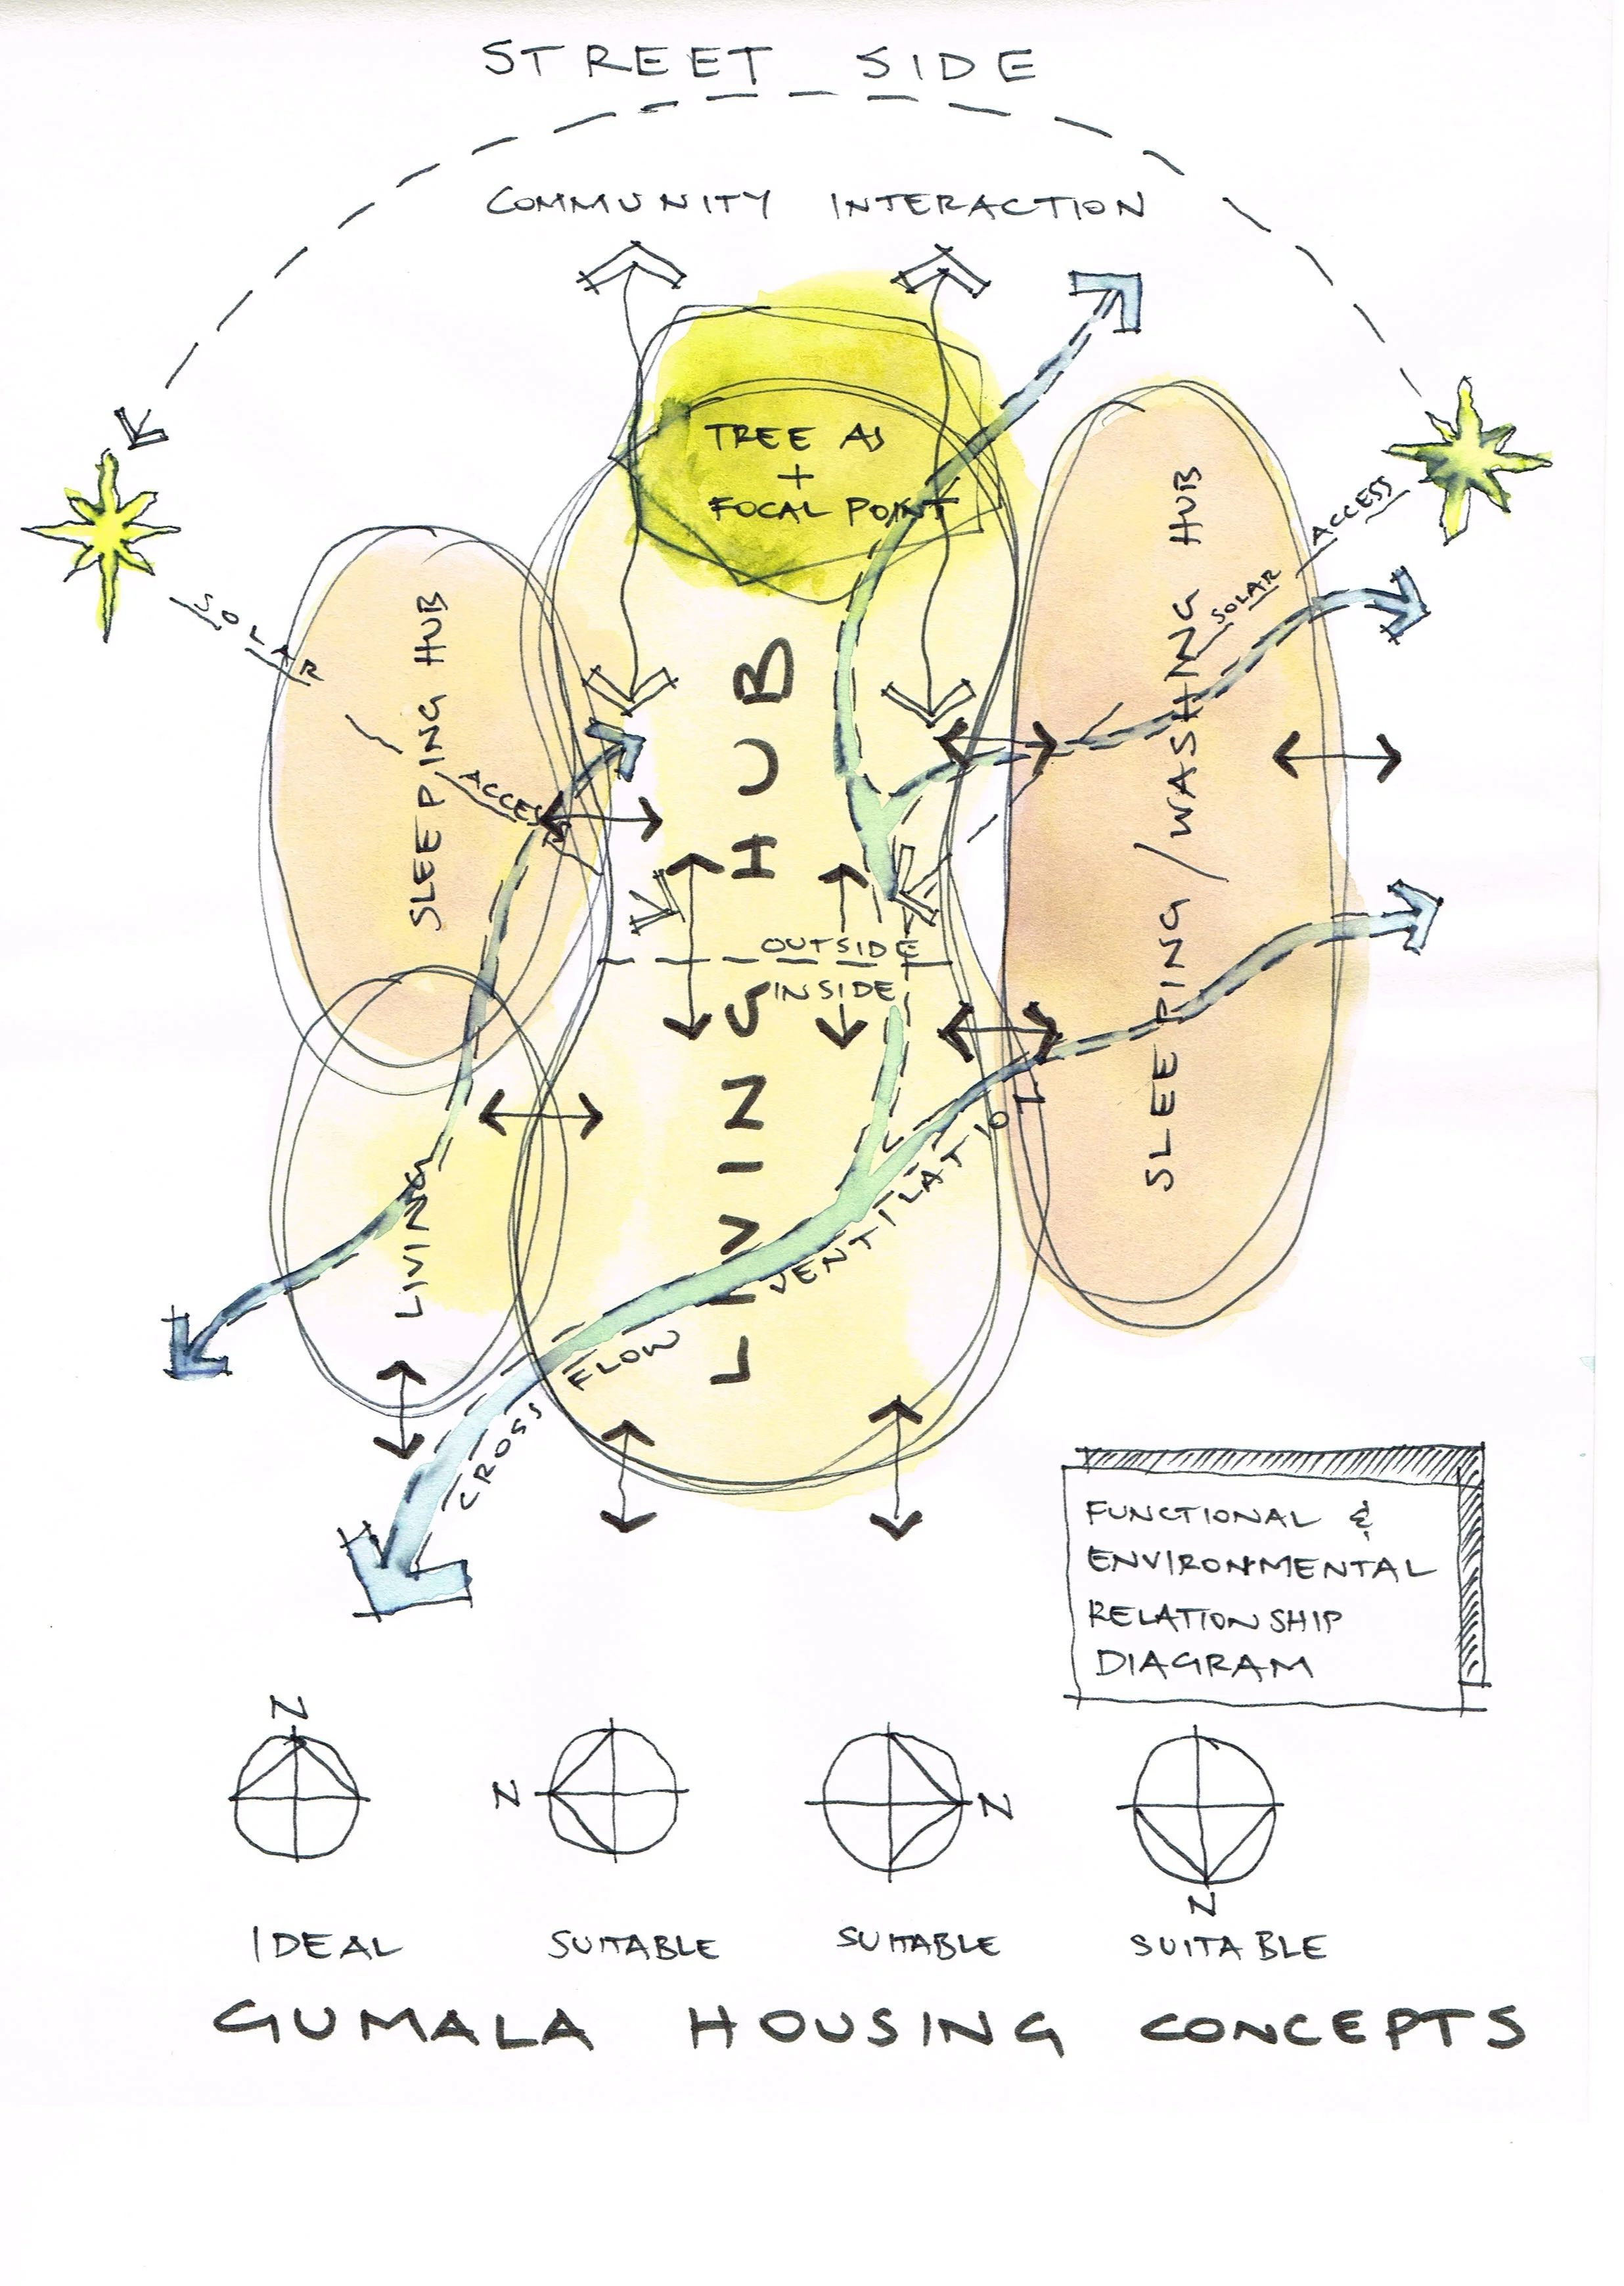 STREET SIDE
COMMUNITY INTERACTION
TREE AS
+
FOCAL POINT
SOLAR
ACCESS
SOLAR
ACCESS
SLEEPING HUB
LIVING HUB
SLEEPING/WASHING HUB
OUTSIDE
INSIDE
LIVING
CROSS FLOW VENTILATION
FUNCTIONAL &
ENVIRONMENTAL
RELATIONSHIP
DIAGRAM
N
N
N
N
IDEAL
SUITABLE
SUITABLE
SUITABLE
GUMALA HOUSING CONCEPTS